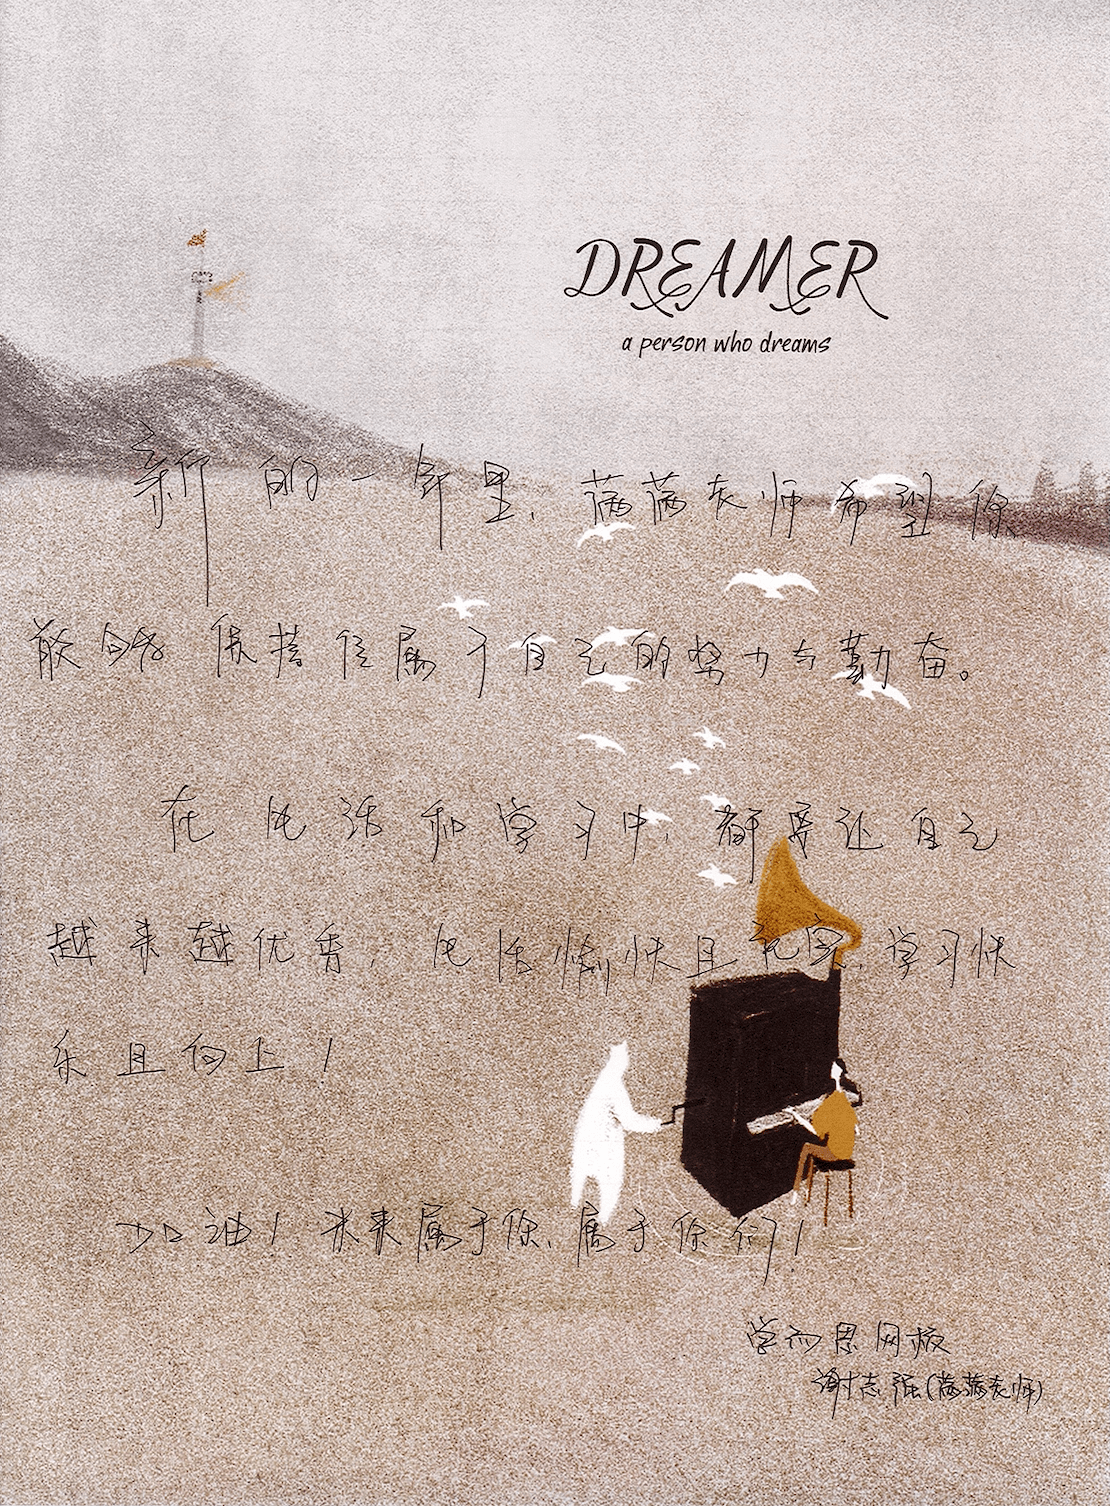 DREAMER
a person who dreams
新的一年里，满满老师希望你
能够保持住属于自己的努力与勤奋。
在生活和学习中，都要让自己
越来越优秀，生活愉快且充实，学习快
乐且向上！
加油！未来属于你，属于你们！
学而思网校
谢志强(满满老师)